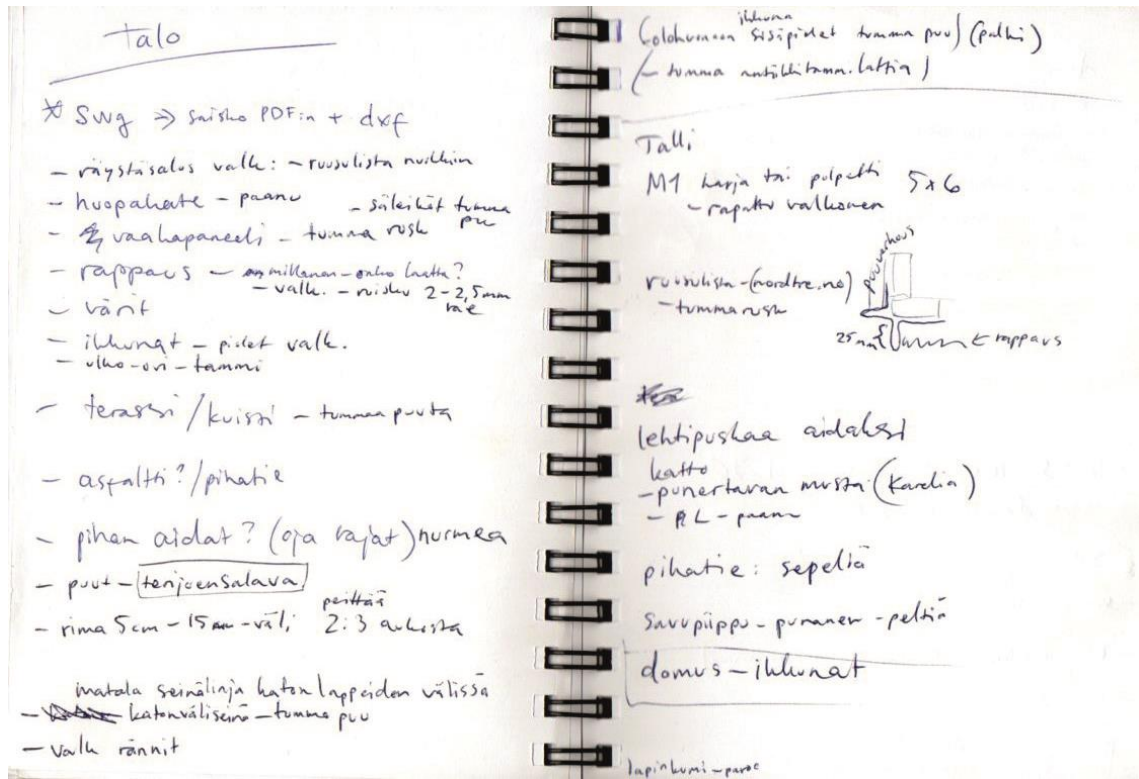 Talo
* Swg ⇒ saisko PDF:n + dxf
- räystäsalus valk: - ruusulista nurkkiin
- huopakate - paanu - säleiköt tumma puu
- vaakapaneeli - tumma rusk
- rappaus - millanen - onko laatta?
- valk. - ruisku 2-2,5mm rae
- värit
- ikkunat - pielet valk.
- ulko-ovi - tammi
- terassi / kuisti - tummaa puuta
- asfaltti? / pihatie
- pihan aidat? (oja rajat) nurmea
- puut - terijoensalava
- rima 5cm - 15mm - väli peittää 2:3 aukosta
matala seinälinja katon lappeiden välissä
- katonväliseinä - tumma puu
- valk rännit
(olohuoneen ikkuna sisäpielet tumma puu) (palki)
(- tumma antiikkitamm. lattia)
Talli
M1 harja tai pulpetti 5x6
- rapattu valkonen
ruusulista - (nordtre.no)
- tumma rusk
puuverhous
25mm
← rappaus
lehtipuskaa aidaksi
katto
- punertavan musta (Kardia)
- KL - paanu
pihatie: sepeliä
Savupiippu - punanen - peltiä
domus - ikkunat